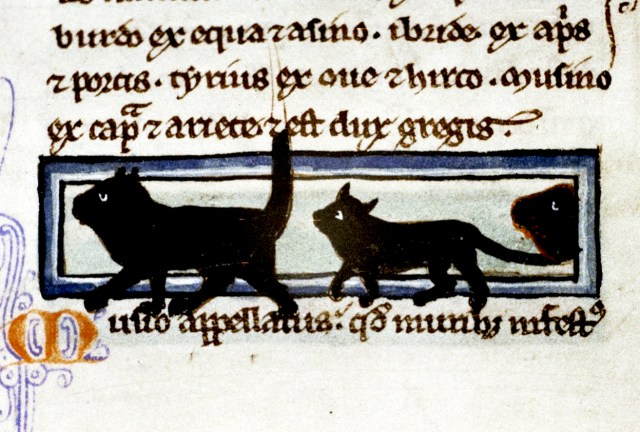 burdo ex equa ⁊ asino. ibride. ex apⁱs
⁊ porcis. tyrius ex oue ⁊ hirco. musino
ex capᵃ ⁊ ariete. ⁊ est dux gregis.
Musio appellatus. qđ muribꝫ infestꝰ